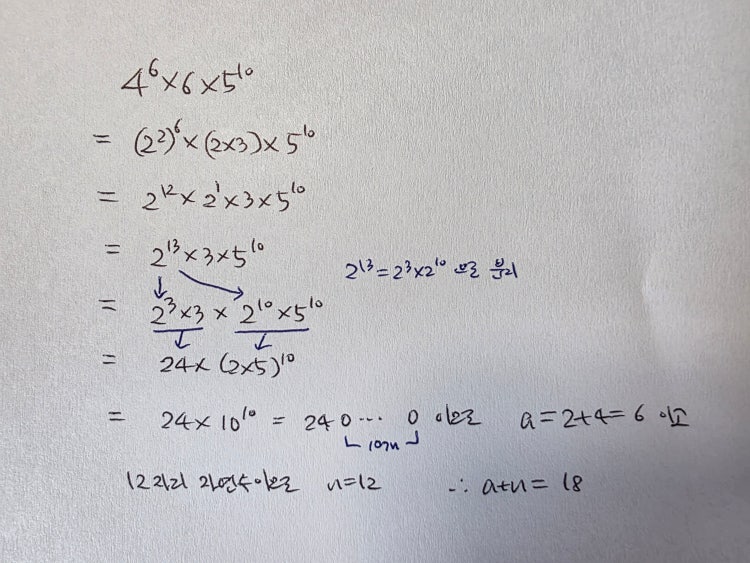 4⁶×6×5¹⁰
= (2²)⁶×(2×3)×5¹⁰
= 2¹²×2¹×3×5¹⁰
= 2¹³×3×5¹⁰
2¹³=2³×2¹⁰ 으로 분리
= 2³×3 × 2¹⁰×5¹⁰
= 24×(2×5)¹⁰
= 24×10¹⁰ = 24 0 ⋯ 0 이므로 a=2+4=6 이고
10개
12자리 자연수이므로 n=12 ∴ a+n= 18